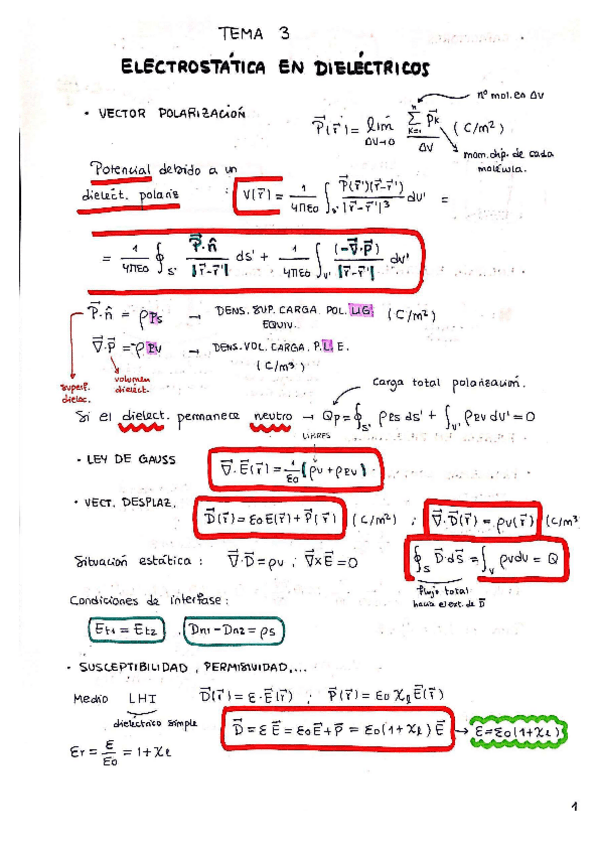 TEMA 3
ELECTROSTÁTICA EN DIELÉCTRICOS
nº mol. en ΔV
• VECTOR POLARIZACIÓN P⃗(r⃗) = lim ΔV→0 Σ K=1 n p⃗k / ΔV (C/m²)
mom. dip. de cada molécula.
Potencial debido a un
dieléct. polariz V(r⃗) = 1/4πε0 ∫s' P⃗(r⃗')(r⃗-r⃗')/|r⃗-r⃗'|³ dv' =
= 1/4πε0 ∮s' P⃗·n̂/|r⃗-r⃗'| ds' + 1/4πε0 ∫v' (-∇⃗·P⃗)/|r⃗-r⃗'| dv'
P⃗·n̂ = ρPs → DENS. SUP. CARGA. POL. LIG. EQUIV. (C/m²)
∇⃗·P⃗ = -ρPV → DENS. VOL. CARGA. P.L.E. (C/m³)
superf. dieléc.
volumen dieléct.
Carga total polarización.
Si el dieléct. permanece neutro → Qp = ∮s' ρPs ds' + ∫v' ρPV dv' = 0
LIBRES
• LEY DE GAUSS ∇⃗·E⃗(r⃗) = 1/ε0 (ρv + ρPV)
• VECT. DESPLAZ. D⃗(r⃗) = ε0E(r⃗) + P⃗(r⃗) (C/m²) ; ∇⃗·D⃗(r⃗) = ρv(r⃗) (C/m³
Situación estática : ∇⃗·D⃗ = ρv ; ∇⃗×E⃗ = 0 ∮s D⃗·dS⃗ = ∫v ρvdv = Q
flujo total
hacia el ext. de D⃗
Condiciones de interfase:
Et1 = Et2 , Dn1 - Dn2 = ρs
• SUSCEPTIBILIDAD , PERMISIVIDAD,...
Medio LHI D⃗(r⃗) = ε·E⃗(r⃗) ; P⃗(r⃗) = ε0 χe E⃗(r⃗)
dieléctrico simple
D⃗ = ε E⃗ = ε0E⃗ + P⃗ = ε0(1+χe) E⃗ → ε=ε0(1+χe)
εr = ε/ε0 = 1+χe
1